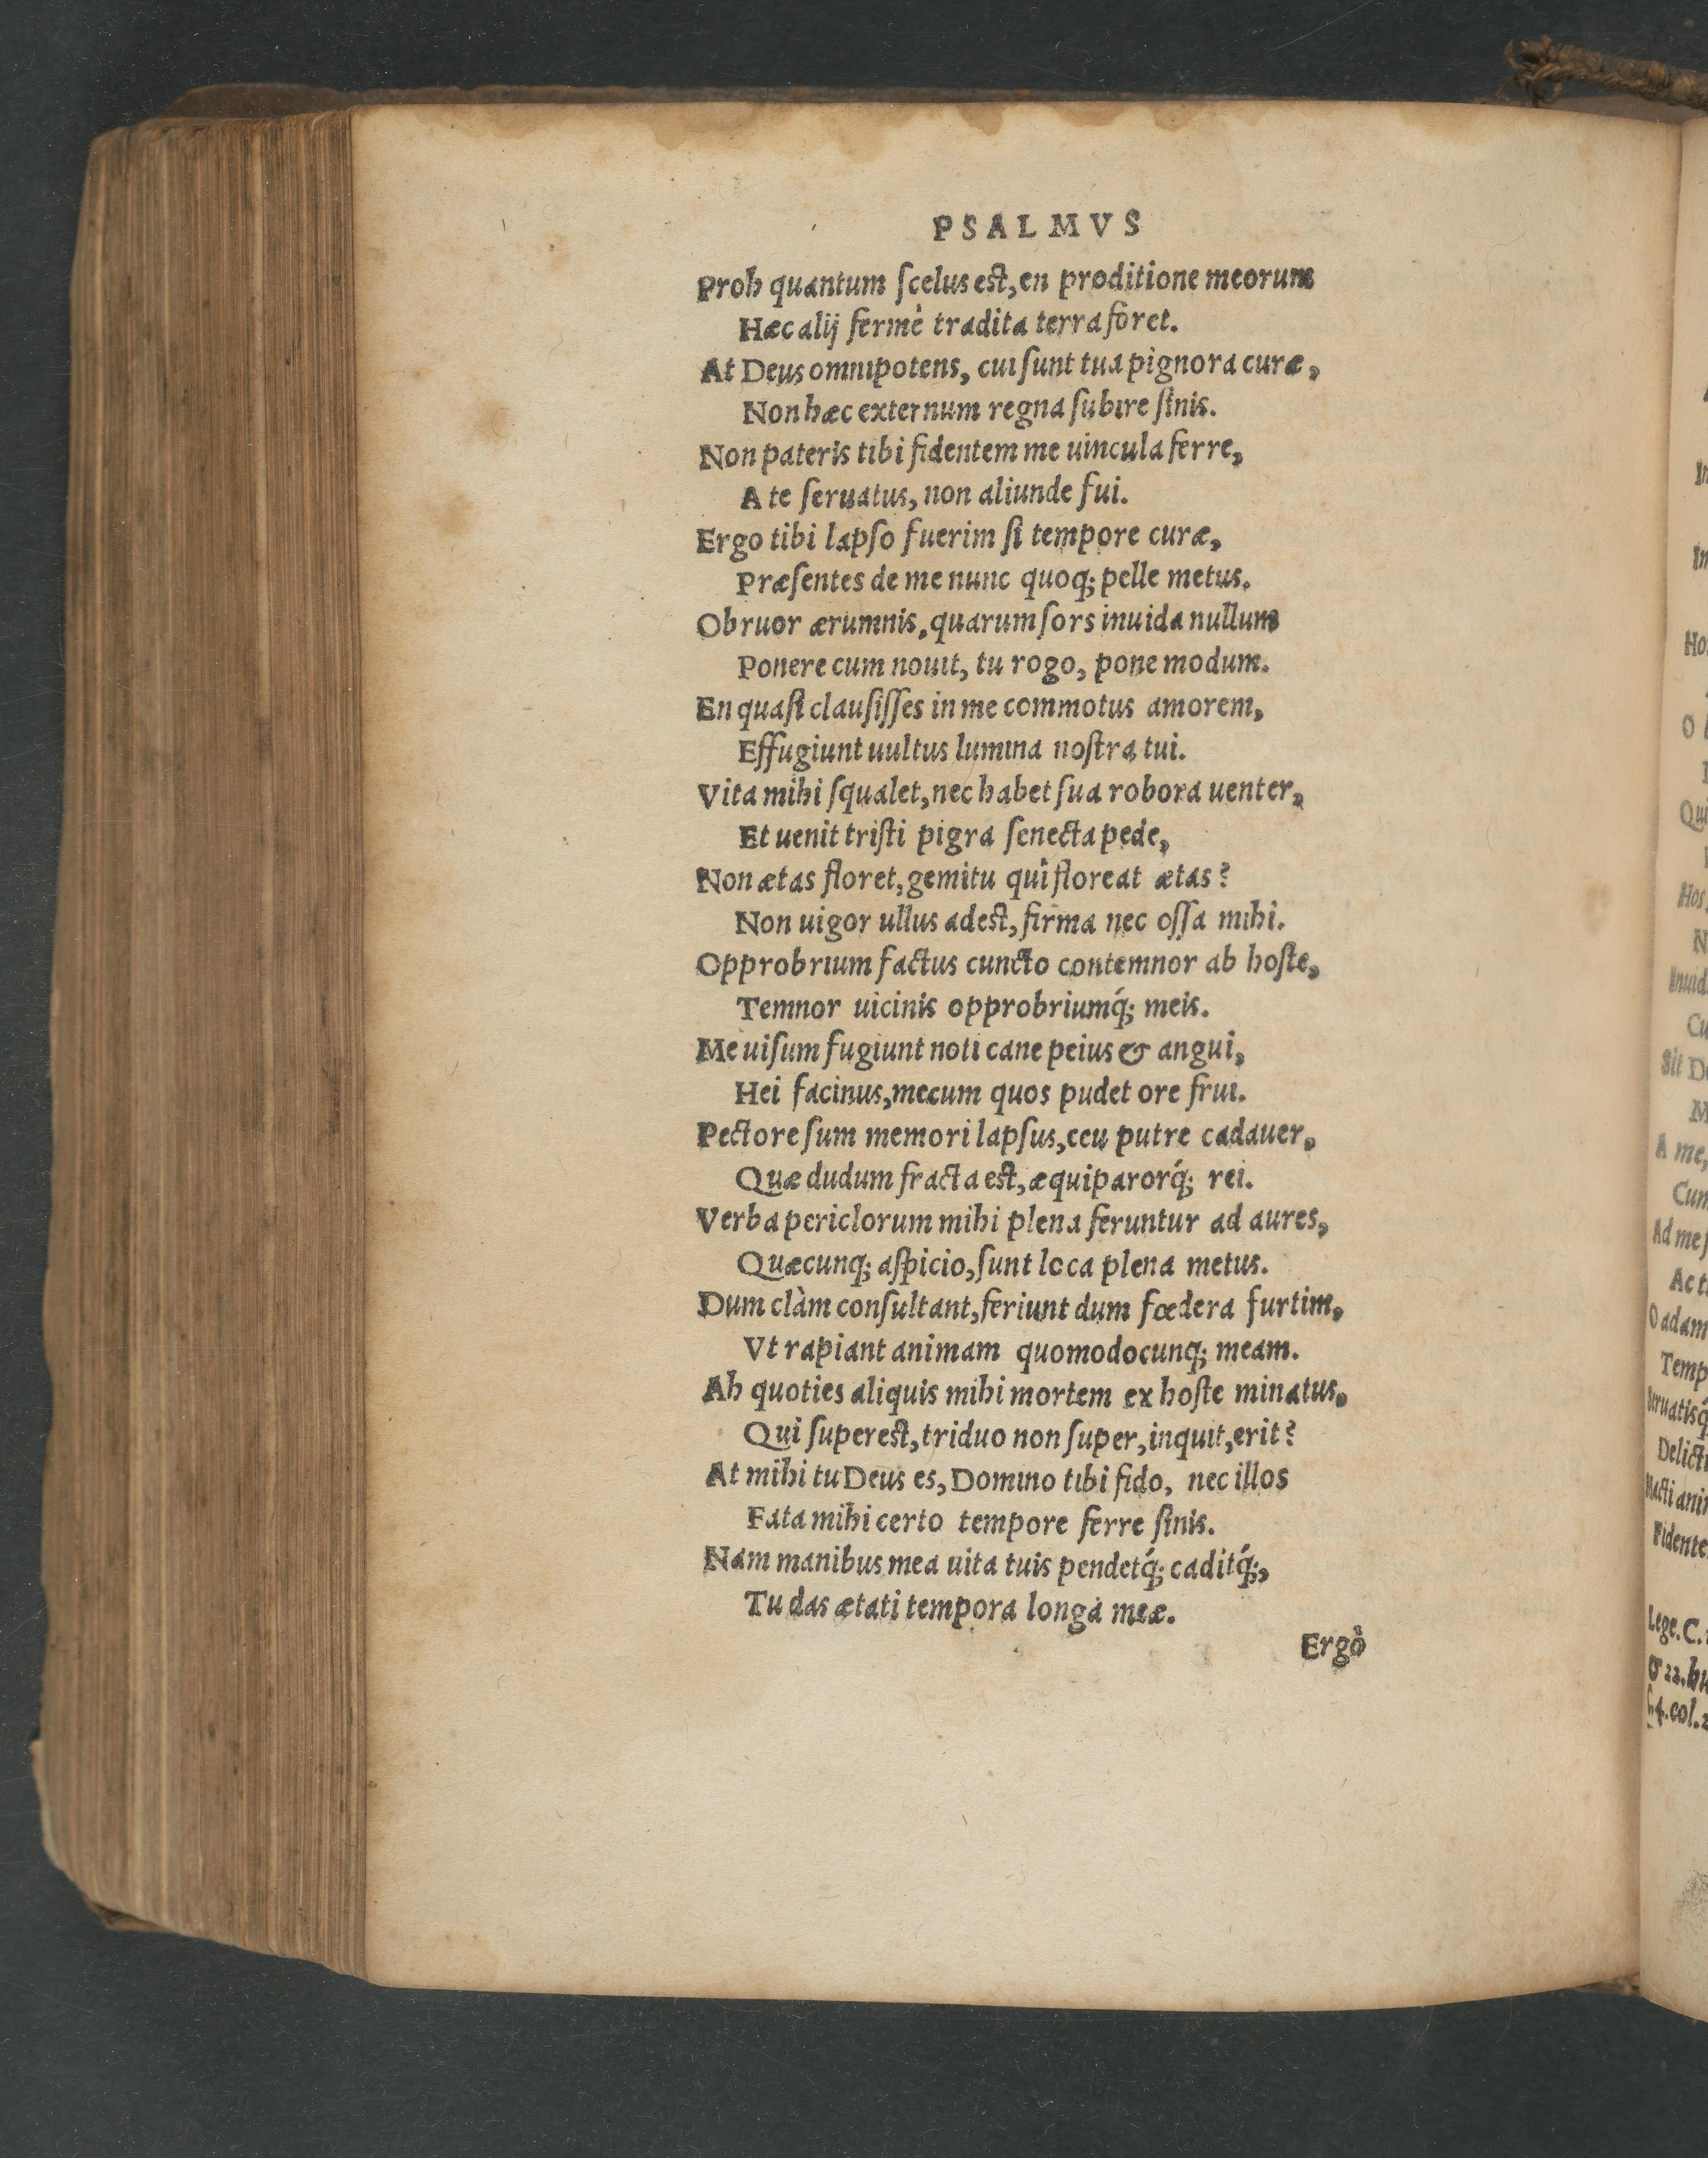 PSALMVS
Proh quantum ſcelus eſt, en proditione meorum
Hæc alij fermè tradita terra foret.
At Deus omnipotens, cui ſunt tua pignora curæ,
Non hæc externum regna ſubire ſinis.
Non pateris tibi fidentem me uincula ferre,
A te ſeruatus, non aliunde fui.
Ergo tibi lapſo fuerim ſi tempore curæ,
Præſentes de me nunc quoq; pelle metus.
Obruor ærumnis, quarum ſors inuida nullum
Ponere cum nouit, tu rogo, pone modum.
En quaſi clauſiſſes in me commotus amorem,
Effugiunt uultus lumina noſtra tui.
Vita mihi ſqualet, nec habet ſua robora uenter,
Et uenit triſti pigra ſenecta pede,
Non ætas floret, gemitu qui floreat ætas?
Non uigor ullus adest, firma nec oſſa mihi.
Opprobrium factus cuncto contemnor ab hoſte,
Temnor uicinis opprobriumq́; meis.
Me uiſum fugiunt noti cane peius & angui,
Hei facinus, mecum quos pudet ore frui.
Pectore ſum memori lapſus, ceu putre cadauer,
Quæ dudum fracta eſt, æquiparorq́; rei.
Verba periclorum mihi plena feruntur ad aures,
Quæcunq; aſpicio, ſunt loca plena metus.
Dum clàm conſultant, feriunt dum fœdera furtim,
Vt rapiant animam quomodocunq; meam.
Ah quoties aliquis mihi mortem ex hoſte minatus,
Qui ſupereſt, triduo non ſuper, inquit, erit?
At mihi tu Deus es, Domino tibi fido, nec illos
Fata mihi certo tempore ferre ſinis.
Nam manibus mea uita tuis pendetq́; caditq́;,
Tu das ætati tempora longa meæ.
Ergò
Ho
O
Qui
Hos,
N
Inuid
Cu
Sit D
M
A me,
Cum
Ad me
Ac t
O adam
Temp
Seruatisq́
Delict
Nacti ani
Fidente
Lege. C.
& 22. hu
54. col. 2